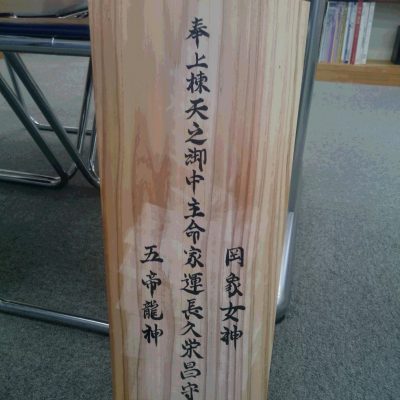 岡象女神
奉上棟天之御中主命家運長久栄昌守
五帝龍神